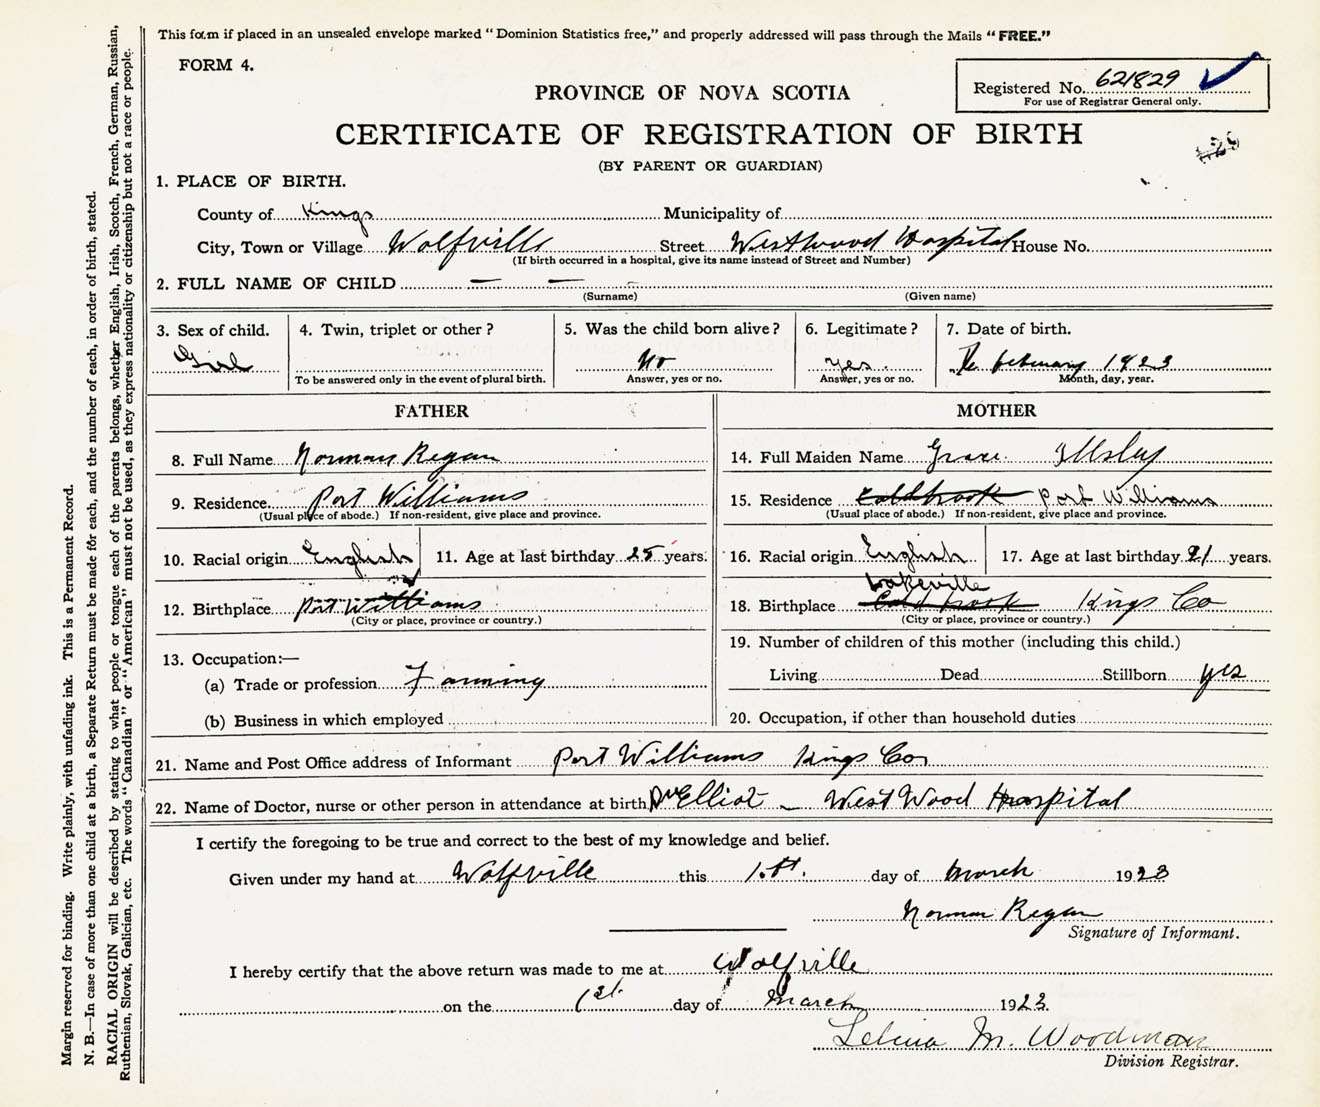 This form if placed in an unsealed envelope marked "Dominion Statistics free," and properly addressed will pass through the Mails "FREE."
FORM 4.
Registered No. 621829
For use of Registrar General only.
PROVINCE OF NOVA SCOTIA
CERTIFICATE OF REGISTRATION OF BIRTH
(BY PARENT OR GUARDIAN)
1. PLACE OF BIRTH.
County of Kings Municipality of
City, Town or Village Wolfville Street Westwood Hospital House No.
(If birth occurred in a hospital, give its name instead of Street and Number)
2. FULL NAME OF CHILD — —
(Surname) (Given name)
3. Sex of child. Girl
4. Twin, triplet or other?
To be answered only in the event of plural birth.
5. Was the child born alive? No
Answer, yes or no.
6. Legitimate? yes.
Answer, yes or no.
7. Date of birth. February 1923
Month, day, year.
FATHER
8. Full Name Norman Regan
9. Residence Port Williams
(Usual place of abode.) If non-resident, give place and province.
10. Racial origin English 11. Age at last birthday 25 years.
12. Birthplace Port Williams
(City or place, province or country.)
13. Occupation:—
(a) Trade or profession Farming
(b) Business in which employed
MOTHER
14. Full Maiden Name Grace Illsley
15. Residence Coldbrook Port Williams
(Usual place of abode.) If non-resident, give place and province.
16. Racial origin English 17. Age at last birthday 21 years.
Lakeville
18. Birthplace Coldbrook Kings Co
(City or place, province or country.)
19. Number of children of this mother (including this child.)
Living Dead Stillborn yes
20. Occupation, if other than household duties
21. Name and Post Office address of Informant Port Williams Kings Co
22. Name of Doctor, nurse or other person in attendance at birth Dr Elliot – West Wood Hospital
I certify the foregoing to be true and correct to the best of my knowledge and belief.
Given under my hand at Wolfville this 1st. day of March 1923
Norman Regan
Signature of Informant.
I hereby certify that the above return was made to me at Wolfville
on the 1st. day of March 1923.
M. Woodman
Division Registrar.
Margin reserved for binding. Write plainly, with unfading ink. This is a Permanent Record.
N. B.—In case of more than one child at a birth, a Separate Return must be made for each, and the number of each, in order of birth, stated.
RACIAL ORIGIN will be described by stating to what people or tongue each of the parents belongs, whether English, Irish, Scotch, French, German, Russian,
Ruthenian, Slovak, Galician, etc. The words "Canadian" or "American" must not be used, as they express nationality or citizenship but not a race or people.